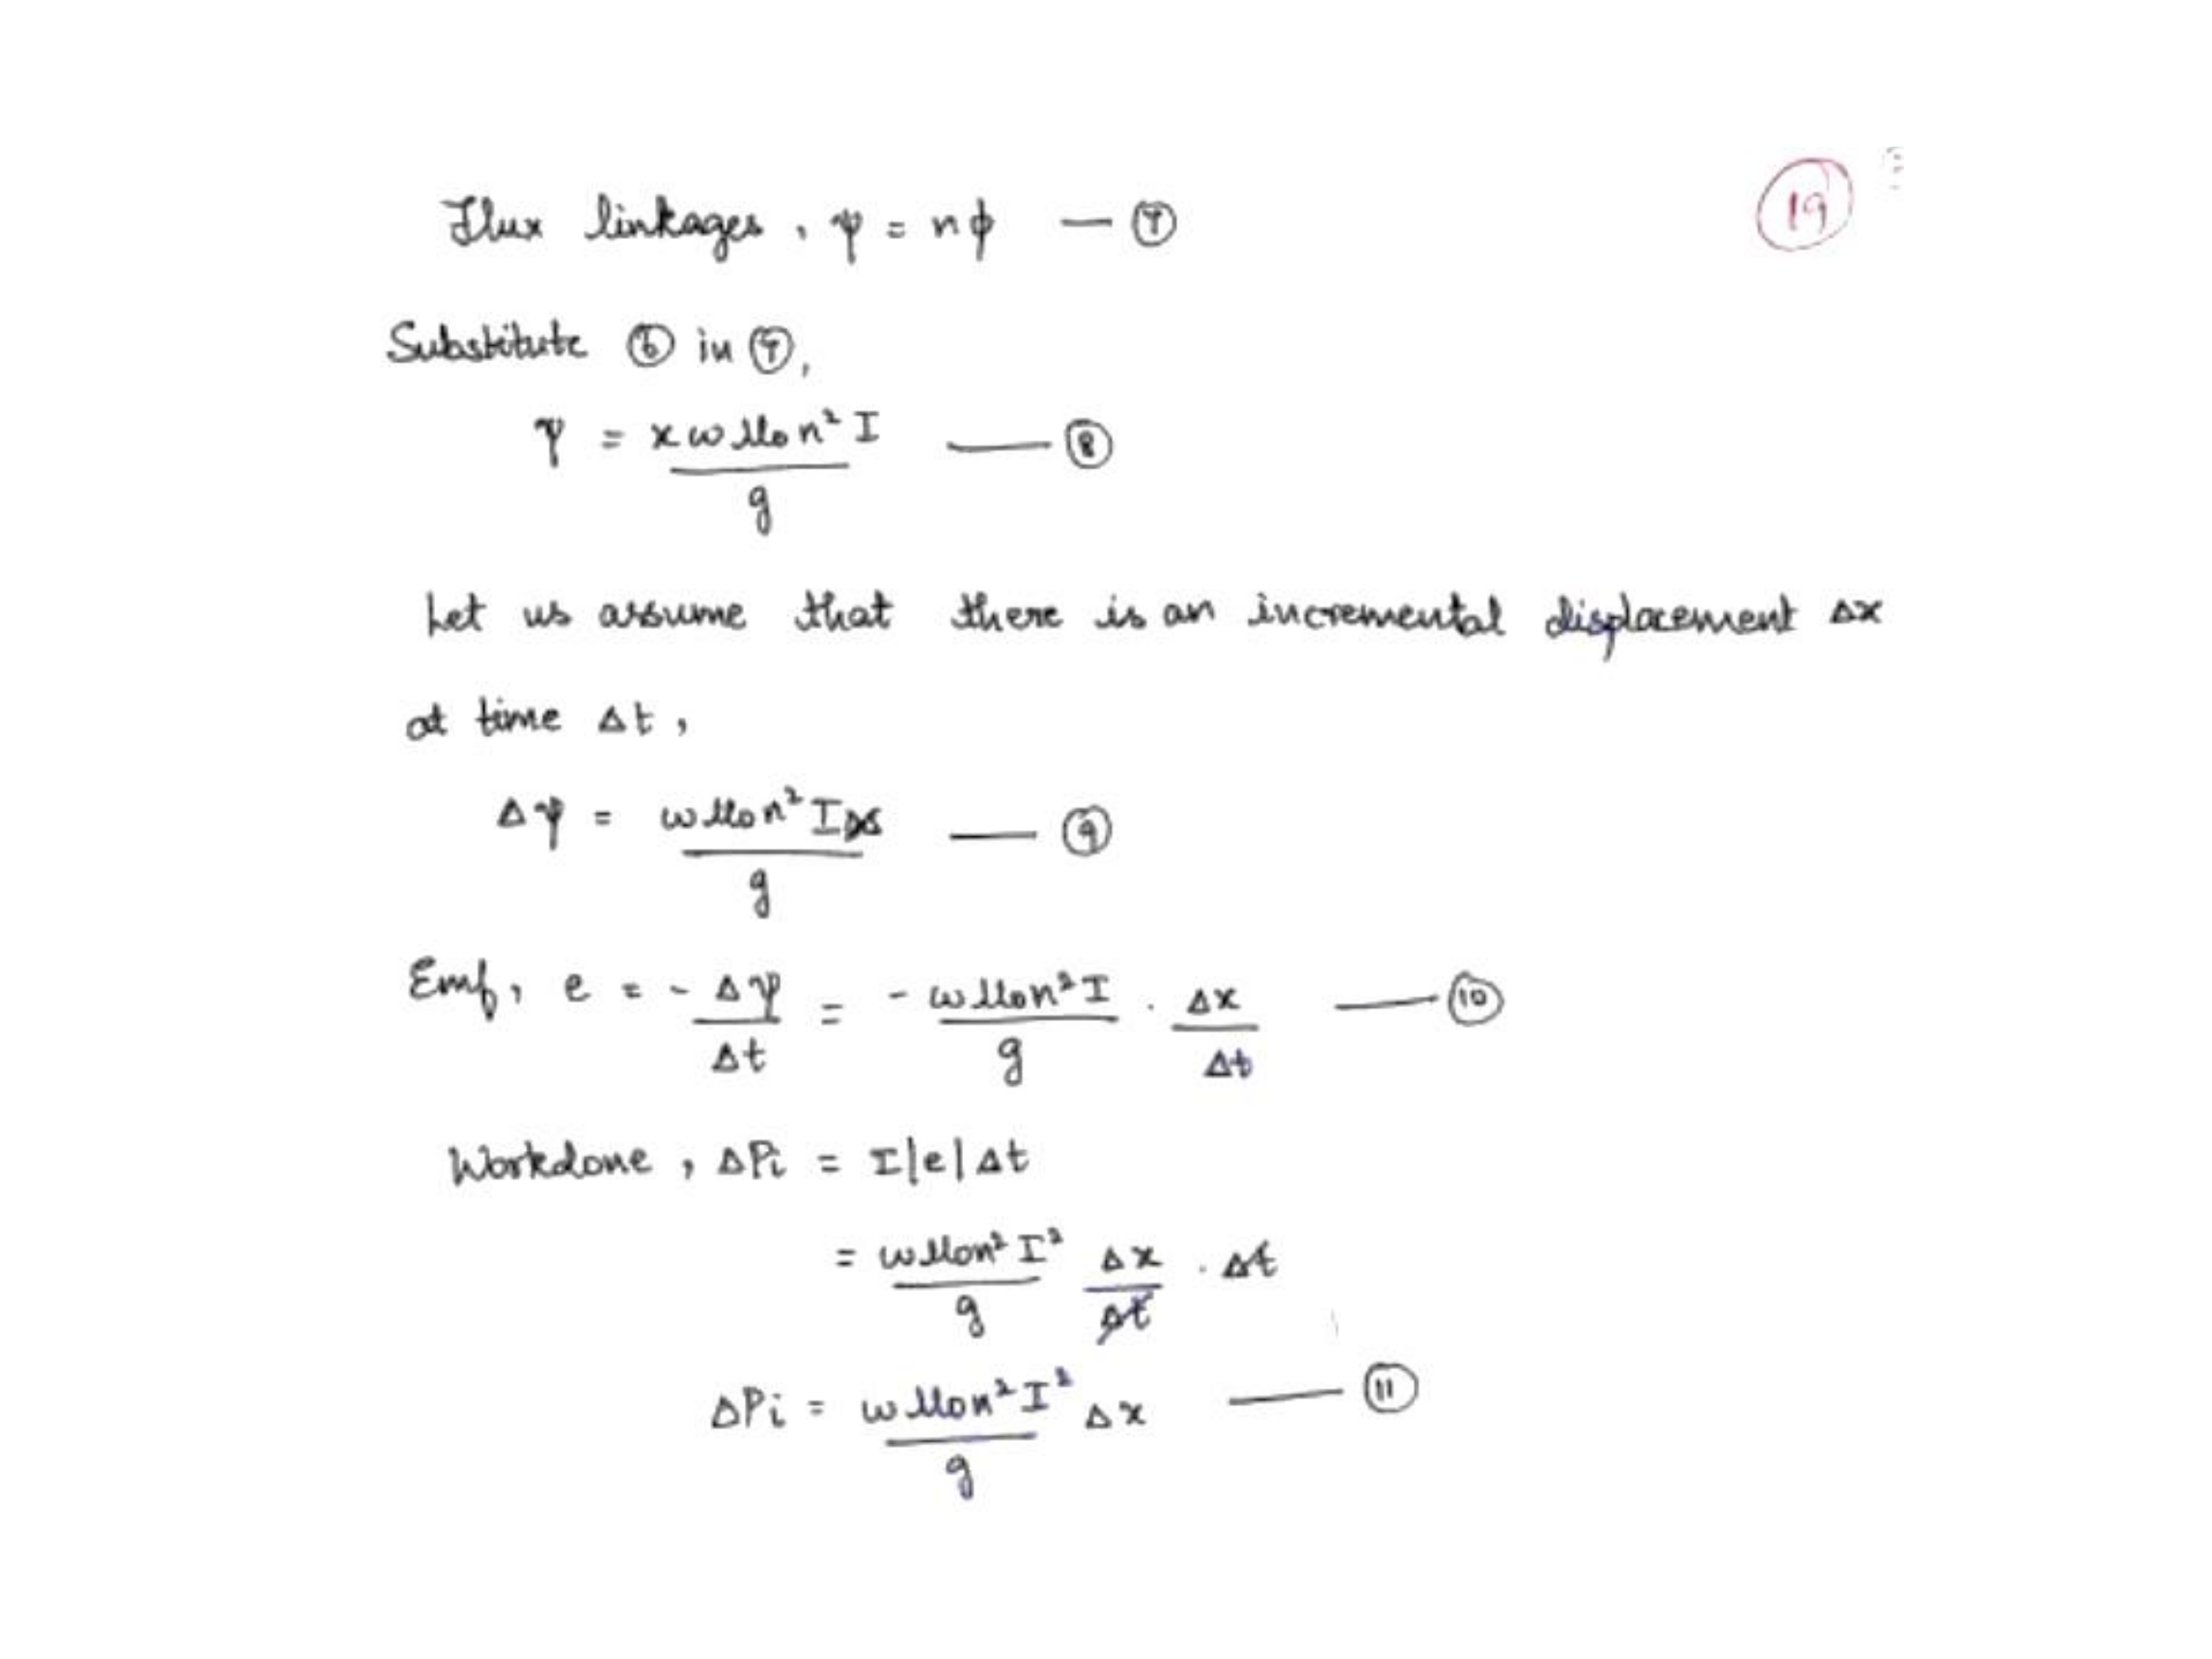 Flux linkages, ψ = nϕ — ⑦
⑲
Substitute ⑥ in ⑦,
ψ = xωμ₀n²I / g — ⑧
Let us assume that there is an incremental displacement Δx
at time Δt,
Δψ = ωμ₀n²IΔx / g — ⑨
Emf, e = - Δψ / Δt = - ωμ₀n²I / g . Δx / Δt — ⑩
Workdone, ΔPi = I|e|Δt
= ωμ₀n²I² / g Δx / Δt . Δt
ΔPi = ωμ₀n²I² / g Δx — ⑪